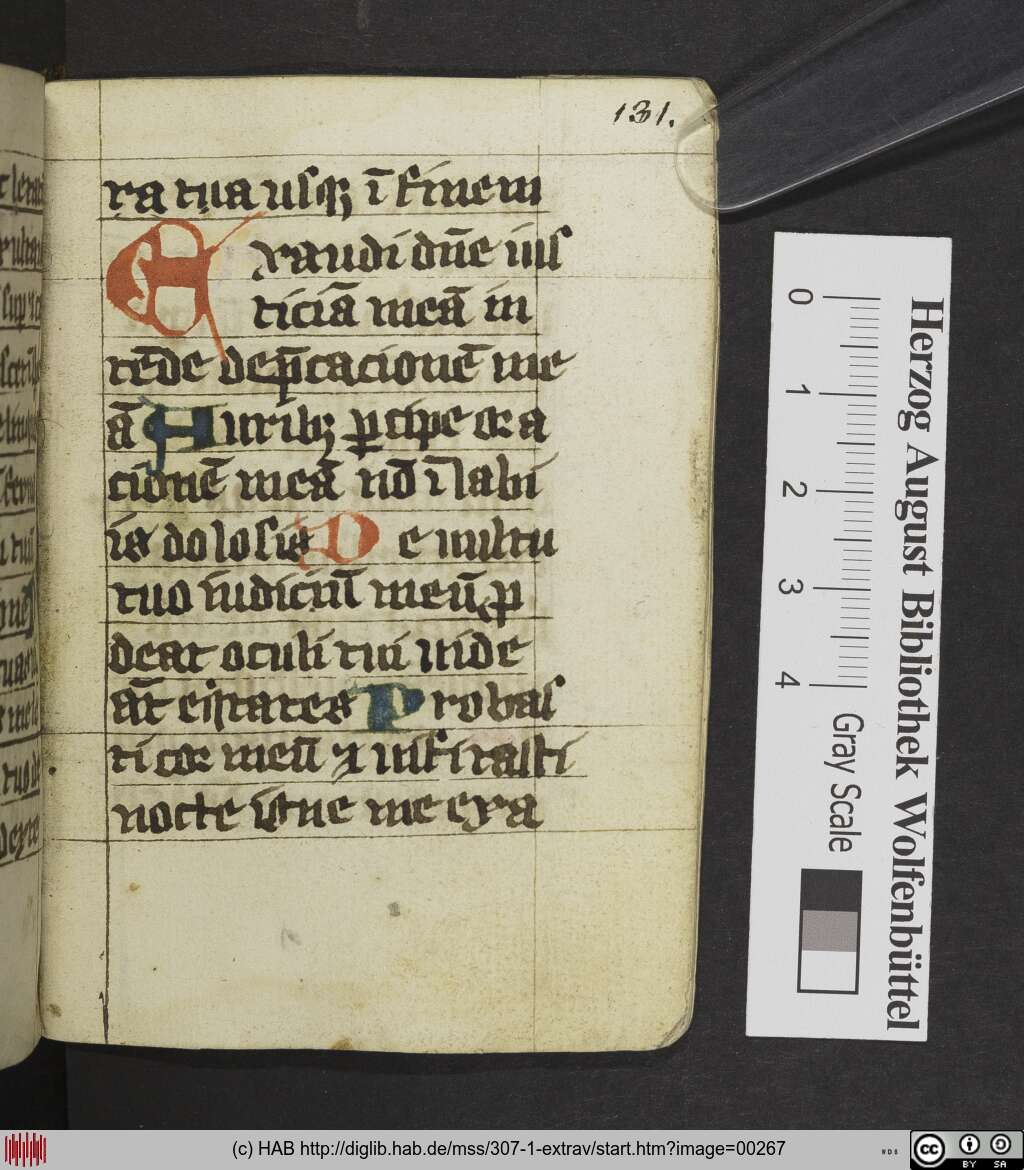 131.
ta tua usqꝫ ī finem
Exaudi dn̄e ius
ticiā meā in
tēde dep̄cacionē me
ā Auribꝫ ꝑcipe ora
cionē meā nō ī labi
is dolosis De uultu
tuo iudiciū meū ꝓ
deat oculi tui uide
āt eq̇tates Probas
ti cor meū ⁊ uisitasti
nocte igne me exa
Herzog August Bibliothek Wolfenbüttel
0 1 2 3 4
Gray Scale
(c) HAB http://diglib.hab.de/mss/307-1-extrav/start.htm?image=00267
cc BY SA